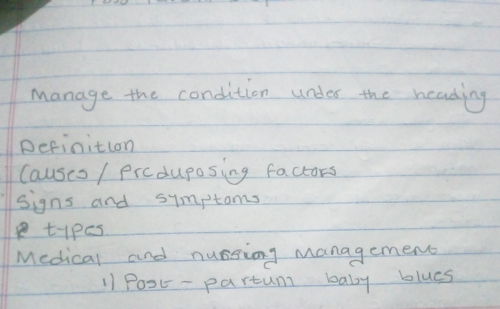 Manage the condition under the heading
Definition
Causes / preduposing factors
Signs and symptoms
types
Medical and nursing management
1) Post-partum baby blues